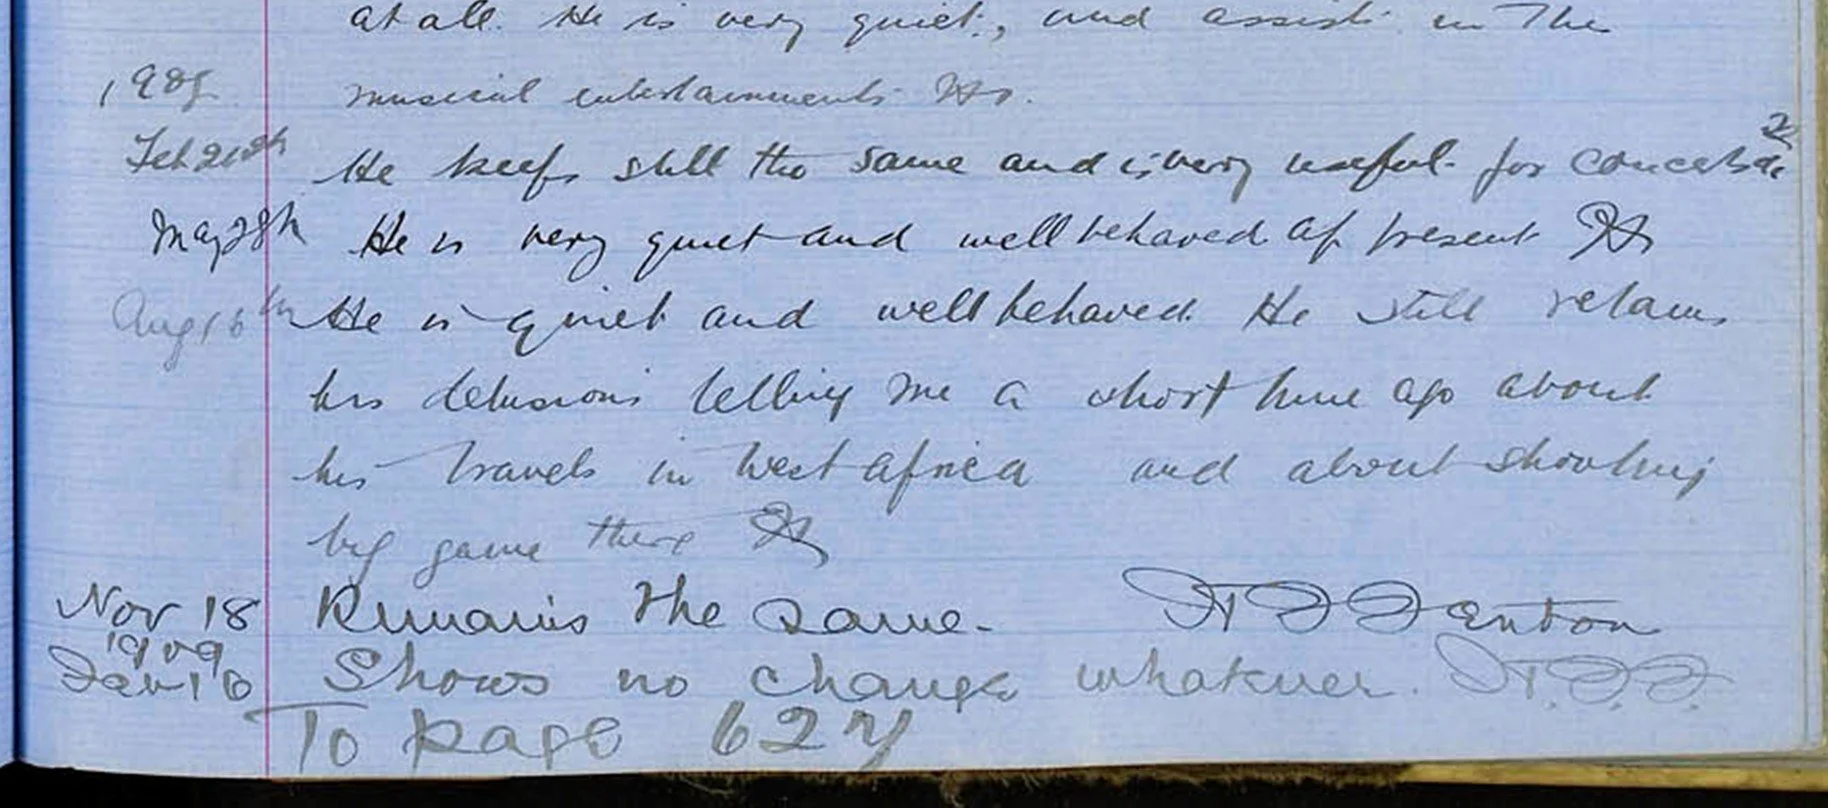 at all. He is very quiet, and assist in the
1908 musical entertainments
Feb He keeps still the same and is very useful for concerts &c
May 28th He is very quiet and well behaved at present
Aug 16th He is quiet and well behaved. He still retains
his delusions telling me a short time ago about
his travels in West Africa and about shooting
big game there
Nov 18 Remains the same. Fenton
1909
Shows no change whatever.
To page 627